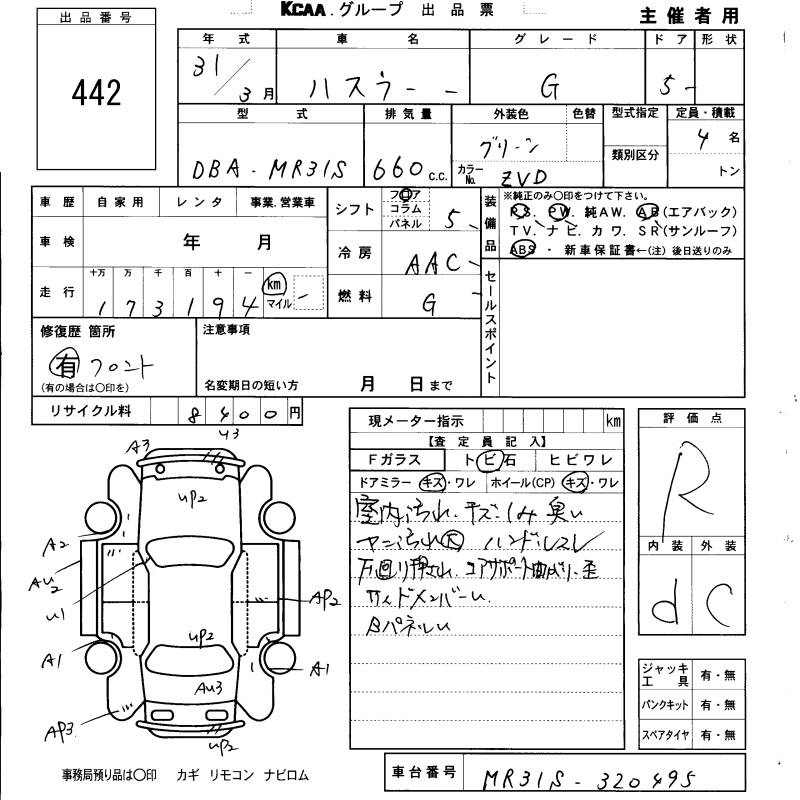 出品番号
442
KCAA.グループ 出品票
主催者用
年式 車名 グレード ドア 形状
31/3月 ハスラー G 5
型式 排気量 外装色 色替 型式指定 定員・積載
DBA-MR31S 660 c.c. グリーン カラーNo. ZVD 類別区分 4名 トン
車歴 自家用 レンタ 事業.営業車
車検 年 月
走行 十万 万 千 百 十 一 km マイル
173194
シフト フロア コラム パネル 5
冷房 AAC
燃料 G
装備品
※純正のみ○印をつけて下さい。
PS. PW. 純AW. AB(エアバック)
TV. ナビ. カワ. SR(サンルーフ)
ABS・新車保証書←(注)後日送りのみ
セールスポイント
修復歴 箇所
有 フロント
(有の場合は○印を)
注意事項
名変期日の短い方 月 日まで
リサイクル料 8400円
現メーター指示 km
【査定員記入】
Fガラス トビ石 ヒビワレ
ドアミラー キズ・ワレ ホイール(CP) キズ・ワレ
室内汚れ.キズ.シミ 臭い
ヤニ汚れ大 ハンドルスレ
下回り押され.コアサポート曲がり.歪
サイドメンバーu
Bパネルu
評価点
R
内装 外装
d C
ジャッキ工具 有・無
パンクキット 有・無
スペアタイヤ 有・無
A3
U3
UP2
A2
AU2
U1
AP2
UP2
A1
A1
AU3
AP3
UP2
事務局預り品は○印 カギ リモコン ナビロム
車台番号 MR31S-320495